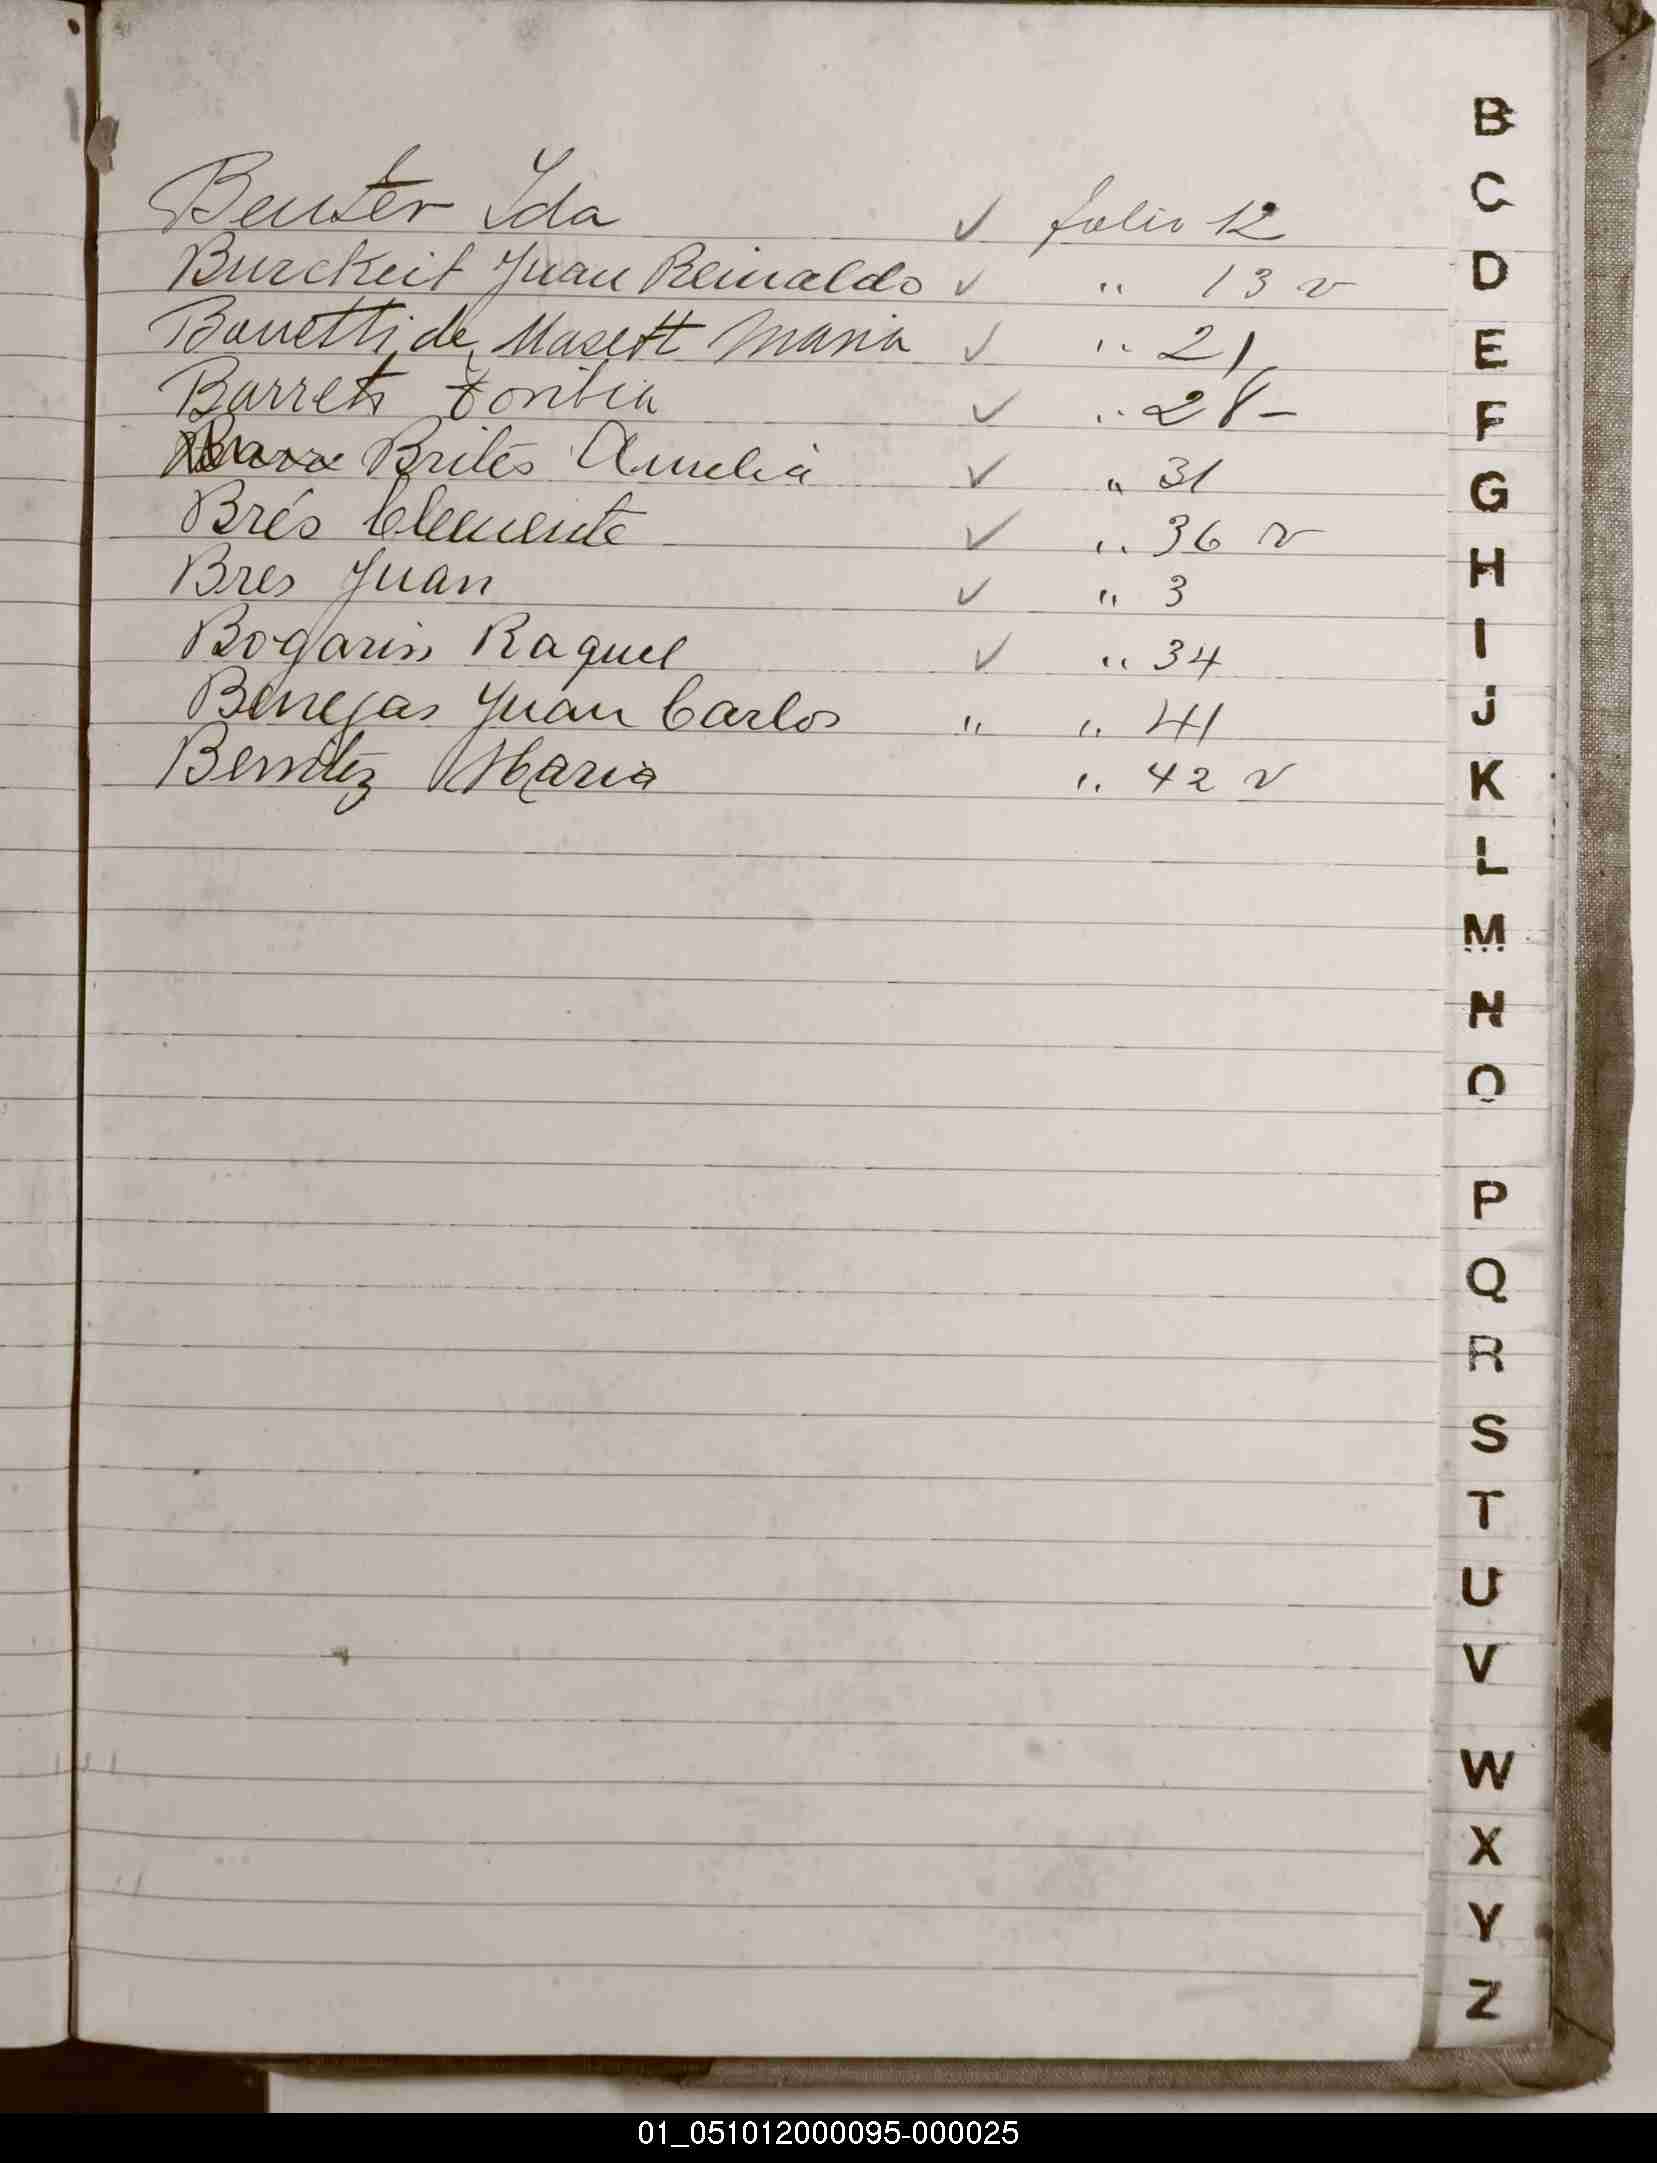 Beuter Ida ✓ folio 12
Burckeit Juan Reinaldo ✓ " 13 v
Bonetti de Masett Maria ✓ " 21
Barreto Toribia ✓ " 28 -
Brites Amelia ✓ " 31
Brés Clemente ✓ " 36 v
Bres Juan ✓ " 3
Bogarin Raquel ✓ " 34
Benegas Juan Carlos " " 41
Benitez Maria " 42 v
B
C
D
E
F
G
H
I
J
K
L
M
N
O
P
Q
R
S
T
U
V
W
X
Y
Z
01_051012000095-000025